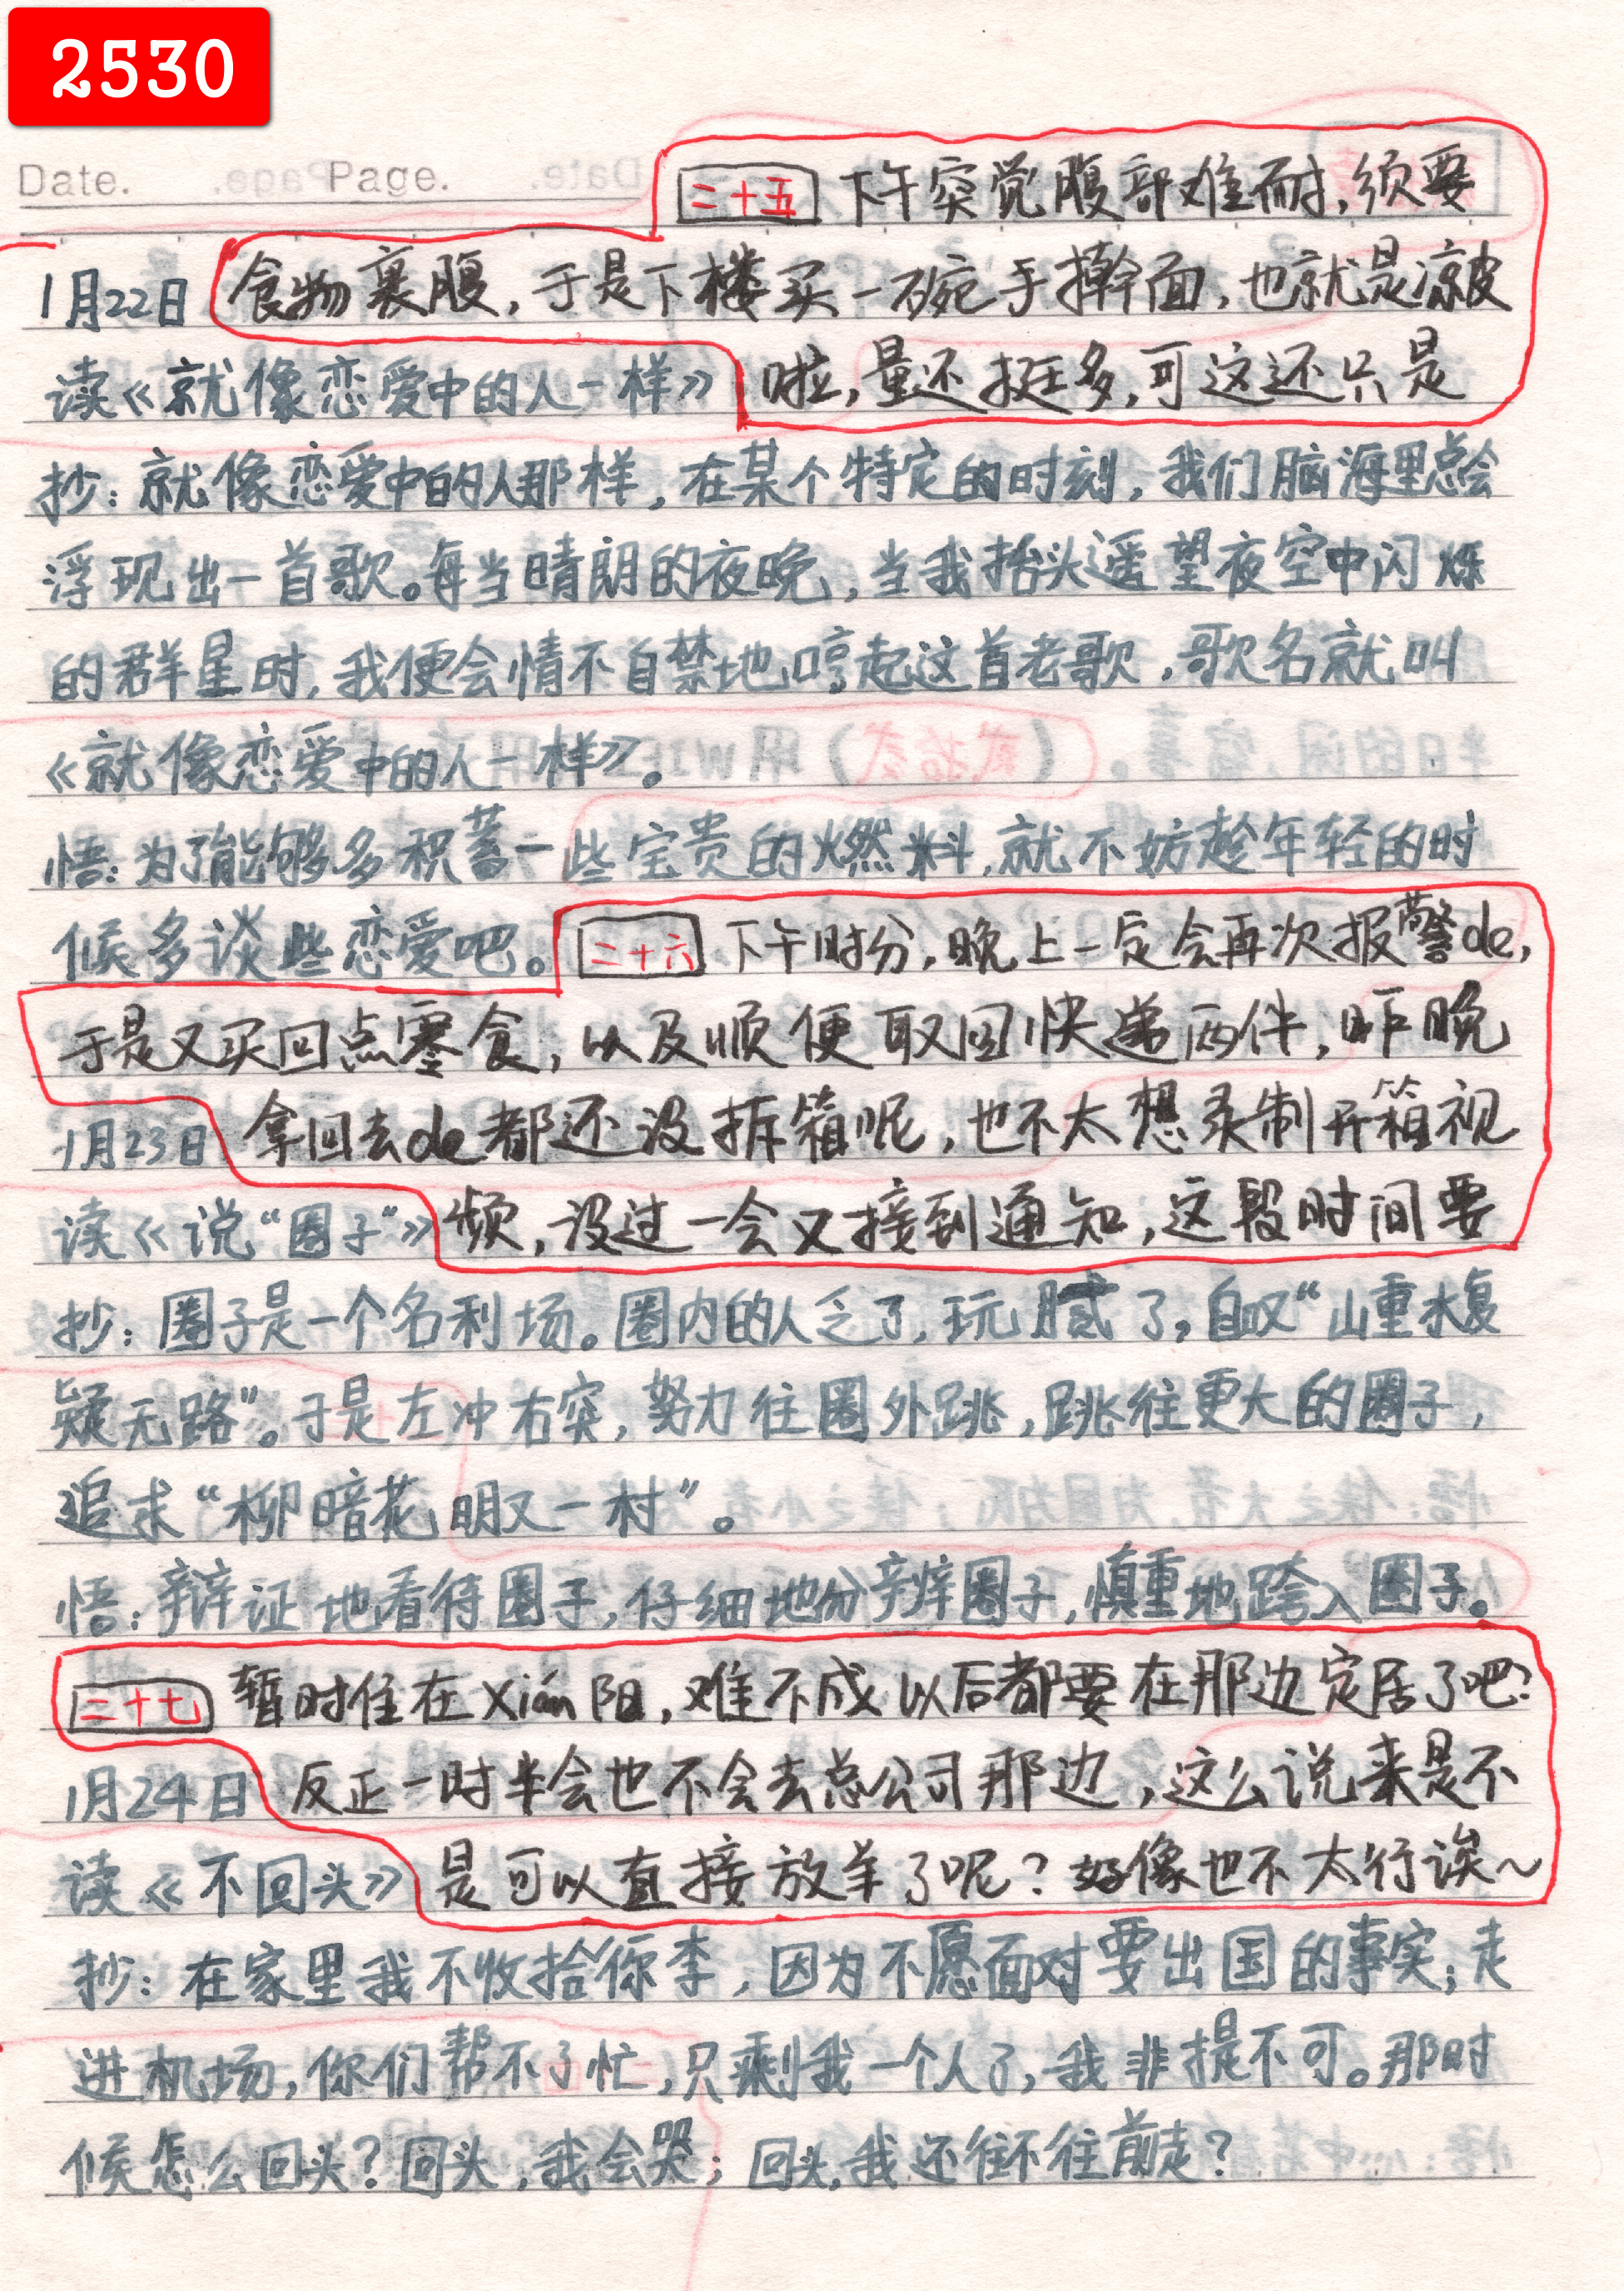 2530
Date.
Page.
二十五 下午突觉腹部难耐,须要
1月22日 食物裹腹,于是下楼买一碗手擀面,也就是凉皮
读《就像恋爱中的人一样》 啦,量还挺多,可这还只是
抄:就像恋爱中的人那样,在某个特定的时刻,我们脑海里总会
浮现出一首歌。每当晴朗的夜晚,当我抬头遥望夜空中闪烁
的群星时,我便会情不自禁地哼起这首老歌,歌名就叫
《就像恋爱中的人一样》。
悟:为了能够多积蓄一些宝贵的燃料,就不妨趁年轻的时
候多谈些恋爱吧。 二十六 下午时分,晚上一定会再次报警de,
于是又买回点零食,以及顺便取回快递两件,昨晚
1月23日 拿回去de都还没拆箱呢,也不太想录制开箱视
读《说“圈子”》 频,没过一会又接到通知,这段时间要
抄:圈子是一个名利场。圈内的人乏了,玩腻了,自叹“山重水复
疑无路”。于是左冲右突,努力往圈外跳,跳往更大的圈子,
追求“柳暗花明又一村”。
悟:辩证地看待圈子,仔细地分辨圈子,慎重地跨入圈子。
二十七 暂时住在xián阳,难不成以后都要在那边定居了吧?
1月24日 反正一时半会也不会去总公司那边,这么说来是不
读《不回头》 是可以直接放羊了呢?好像也不太行诶~
抄:在家里我不收拾你李,因为不愿面对要出国的事实;走
进机场,你们帮不了忙,只剩我一个人了,我非提不可。那时
候怎么回头?回头,我会哭;回头,我还往不往前走?